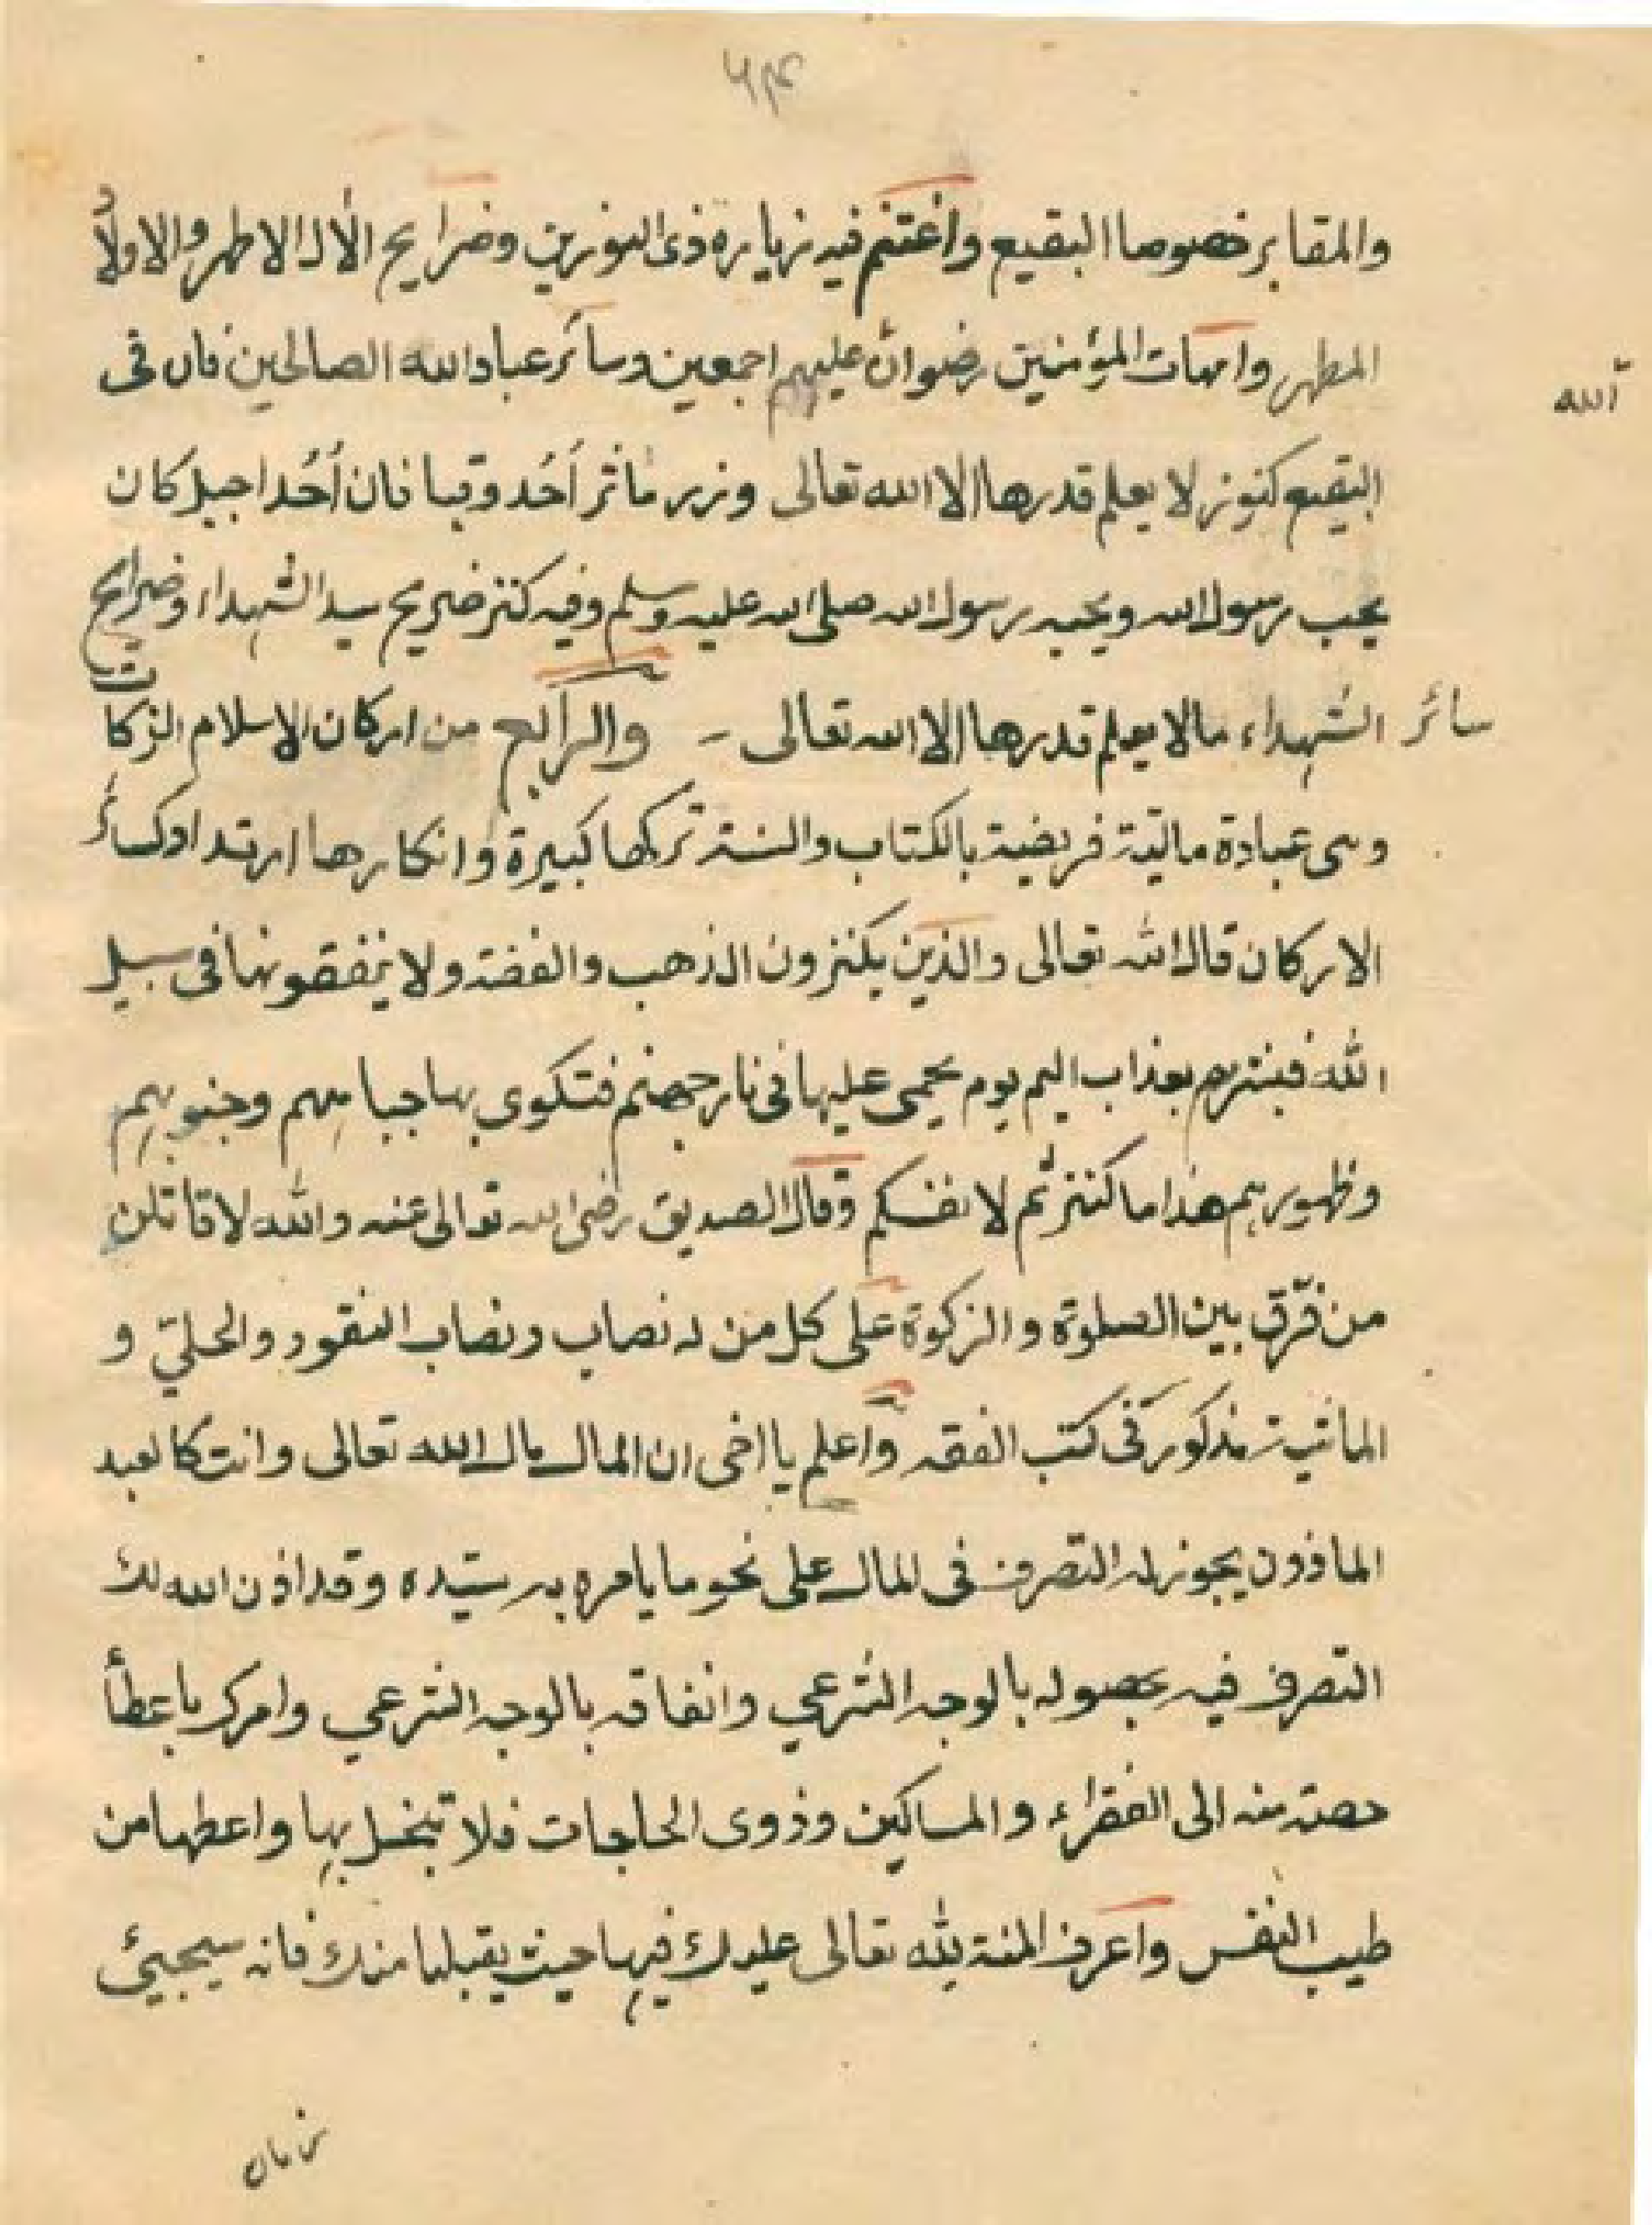 والمقابر خصوصا البقيع واغتنم فيه زيارة ذى النورين وضرايح الأل الاطهر والاولاد
المطهر وامهات المؤمنين رضوان عليهم اجمعين وسائر عباد الله الصالحين فان فى
الله
البقيع كنوز لا يعلم قدرها الا الله تعالى وزر مأثر أحد وقبا فان أحدا جبل كان
يحب رسول الله ويحبه رسول الله صلى الله عليه وسلم وفيه كنز ضريح سيد الشهداء وضرايح
سائر الشهداء مالا يعلم قدرها الا الله تعالى - والرابع من اركان الاسلام الزكات
وهى عبادة ماليّة فريضة بالكتاب والسنة تركها كبيرة وانكارها ارتداد كسائر
الاركان قال الله تعالى والذين يكنزون الذهب والفضة ولا ينفقونها فى سبيل
الله فبشرهم بعذاب اليم يوم يحمى عليها فى نار جهنم فتكوى بها جباههم وجنوبهم
وظهورهم هذا ما كنزتم لانفسكم وقال الصديق رضى الله تعالى عنه والله لاقاتلن
من فرّق بين الصلوة والزكوة على كل من له نصاب ونصاب النقود والحليّ و
الماشية مذكورة فى كتب الفقه واعلم يا اخى ان المال مال الله تعالى وانت كالعبد
الماذون يجوز له التصرف فى المال على نحو ما يامره به سيّده وقد اذن الله لك
التصرف فيه بحصوله بالوجه الشرعي وانفاقه بالوجه الشرعي وامرك باعطأ
حصة منه الى الفقراء والمساكين وذوى الحاجات فلا تبخل بها واعطها من
طيب النفس واعرف المنة لله تعالى عليك فيها حيث يقبلها منك فانه سيجيئ
زمان